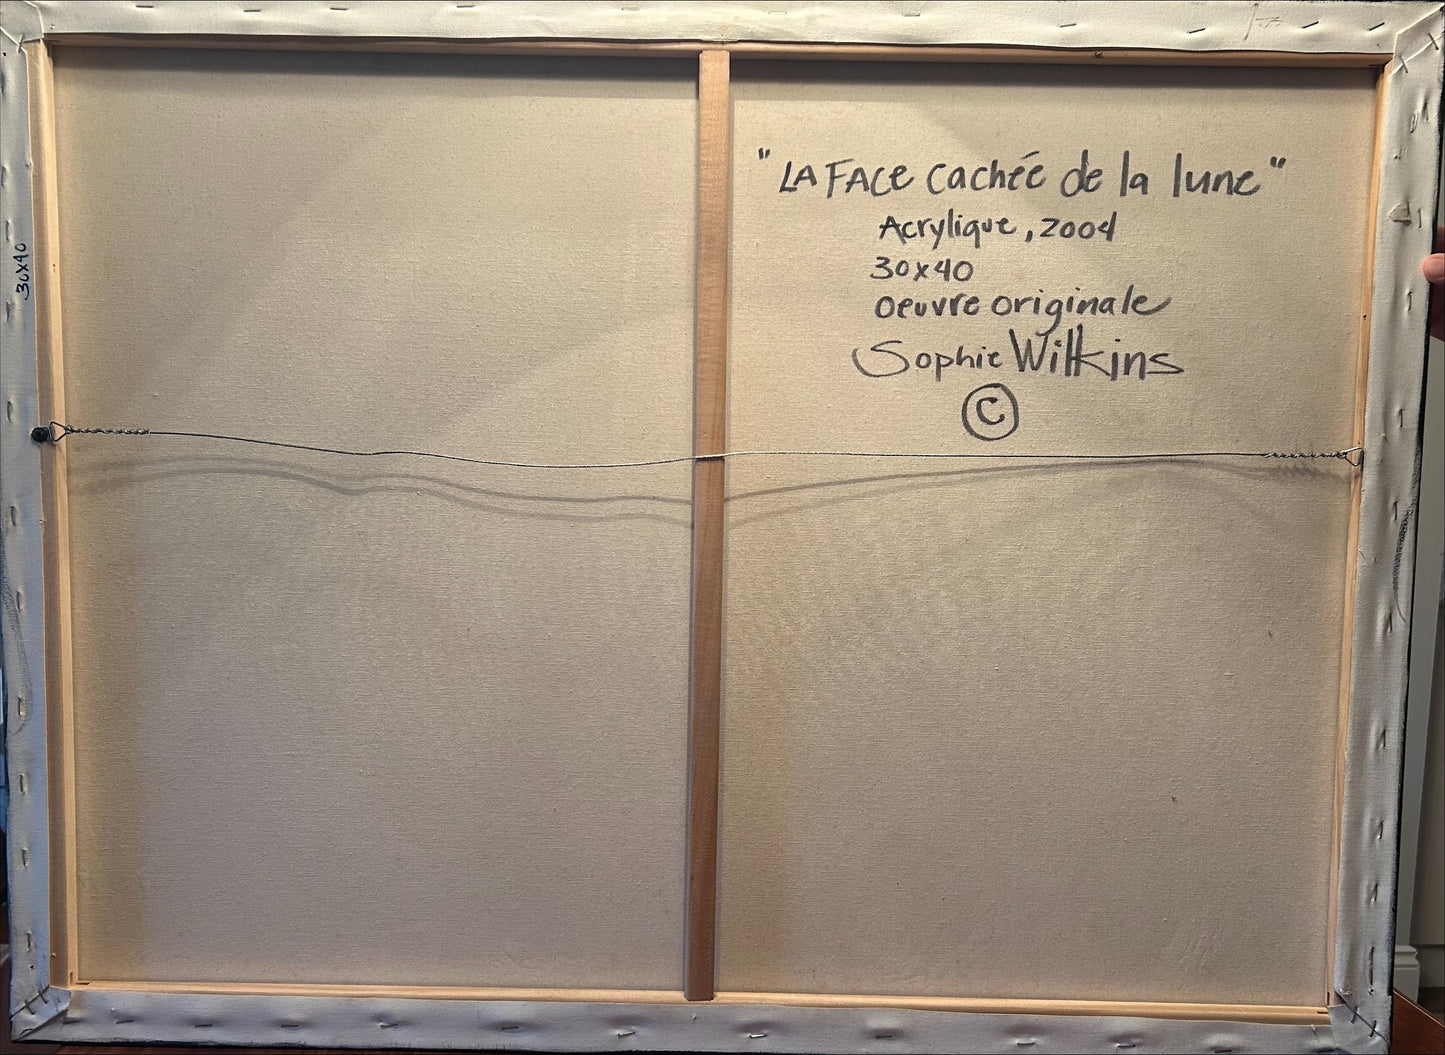 30x40
"LA FACE cachée de la lune"
Acrylique, 2004
30x40
Oeuvre originale
Sophie Wilkins
©